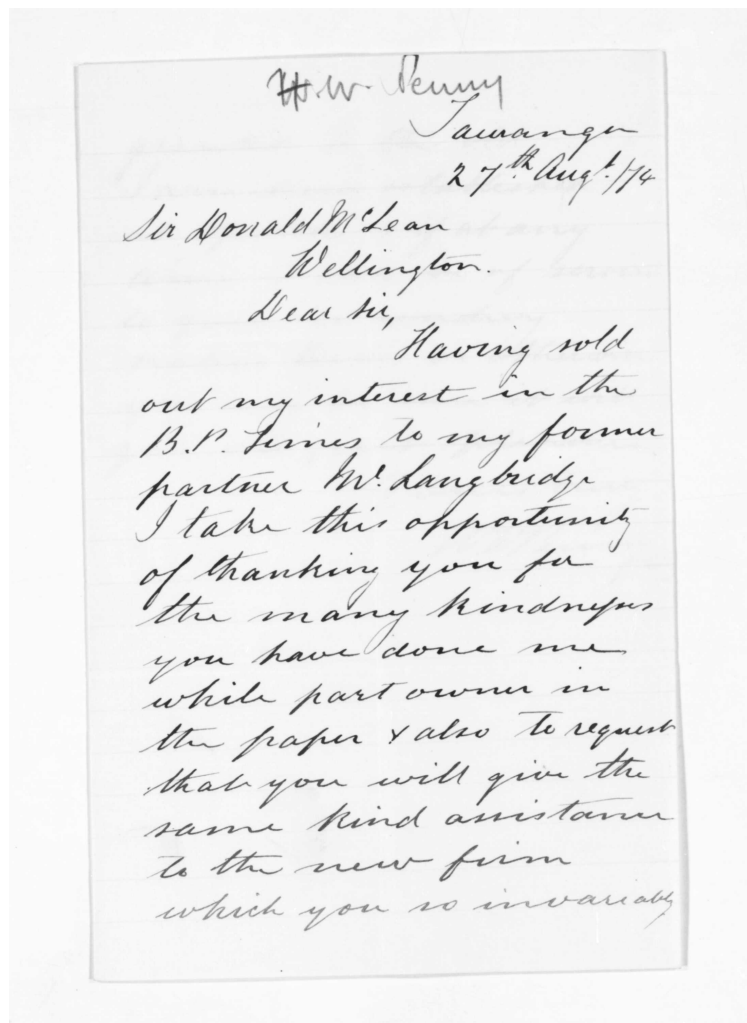 H. W. Penny
Tauranga
27th Augt. /74
Sir Donald McLean
Wellington.
Dear Sir,
Having sold
out my interest in the
B.P. Times to my former
partner Mr. Langbridge
I take this opportunity
of thanking you for
the many kindnesses
you have done me
while part owner in
the paper & also to request
that you will give the
same kind assistance
to the new firm
which you so invariably